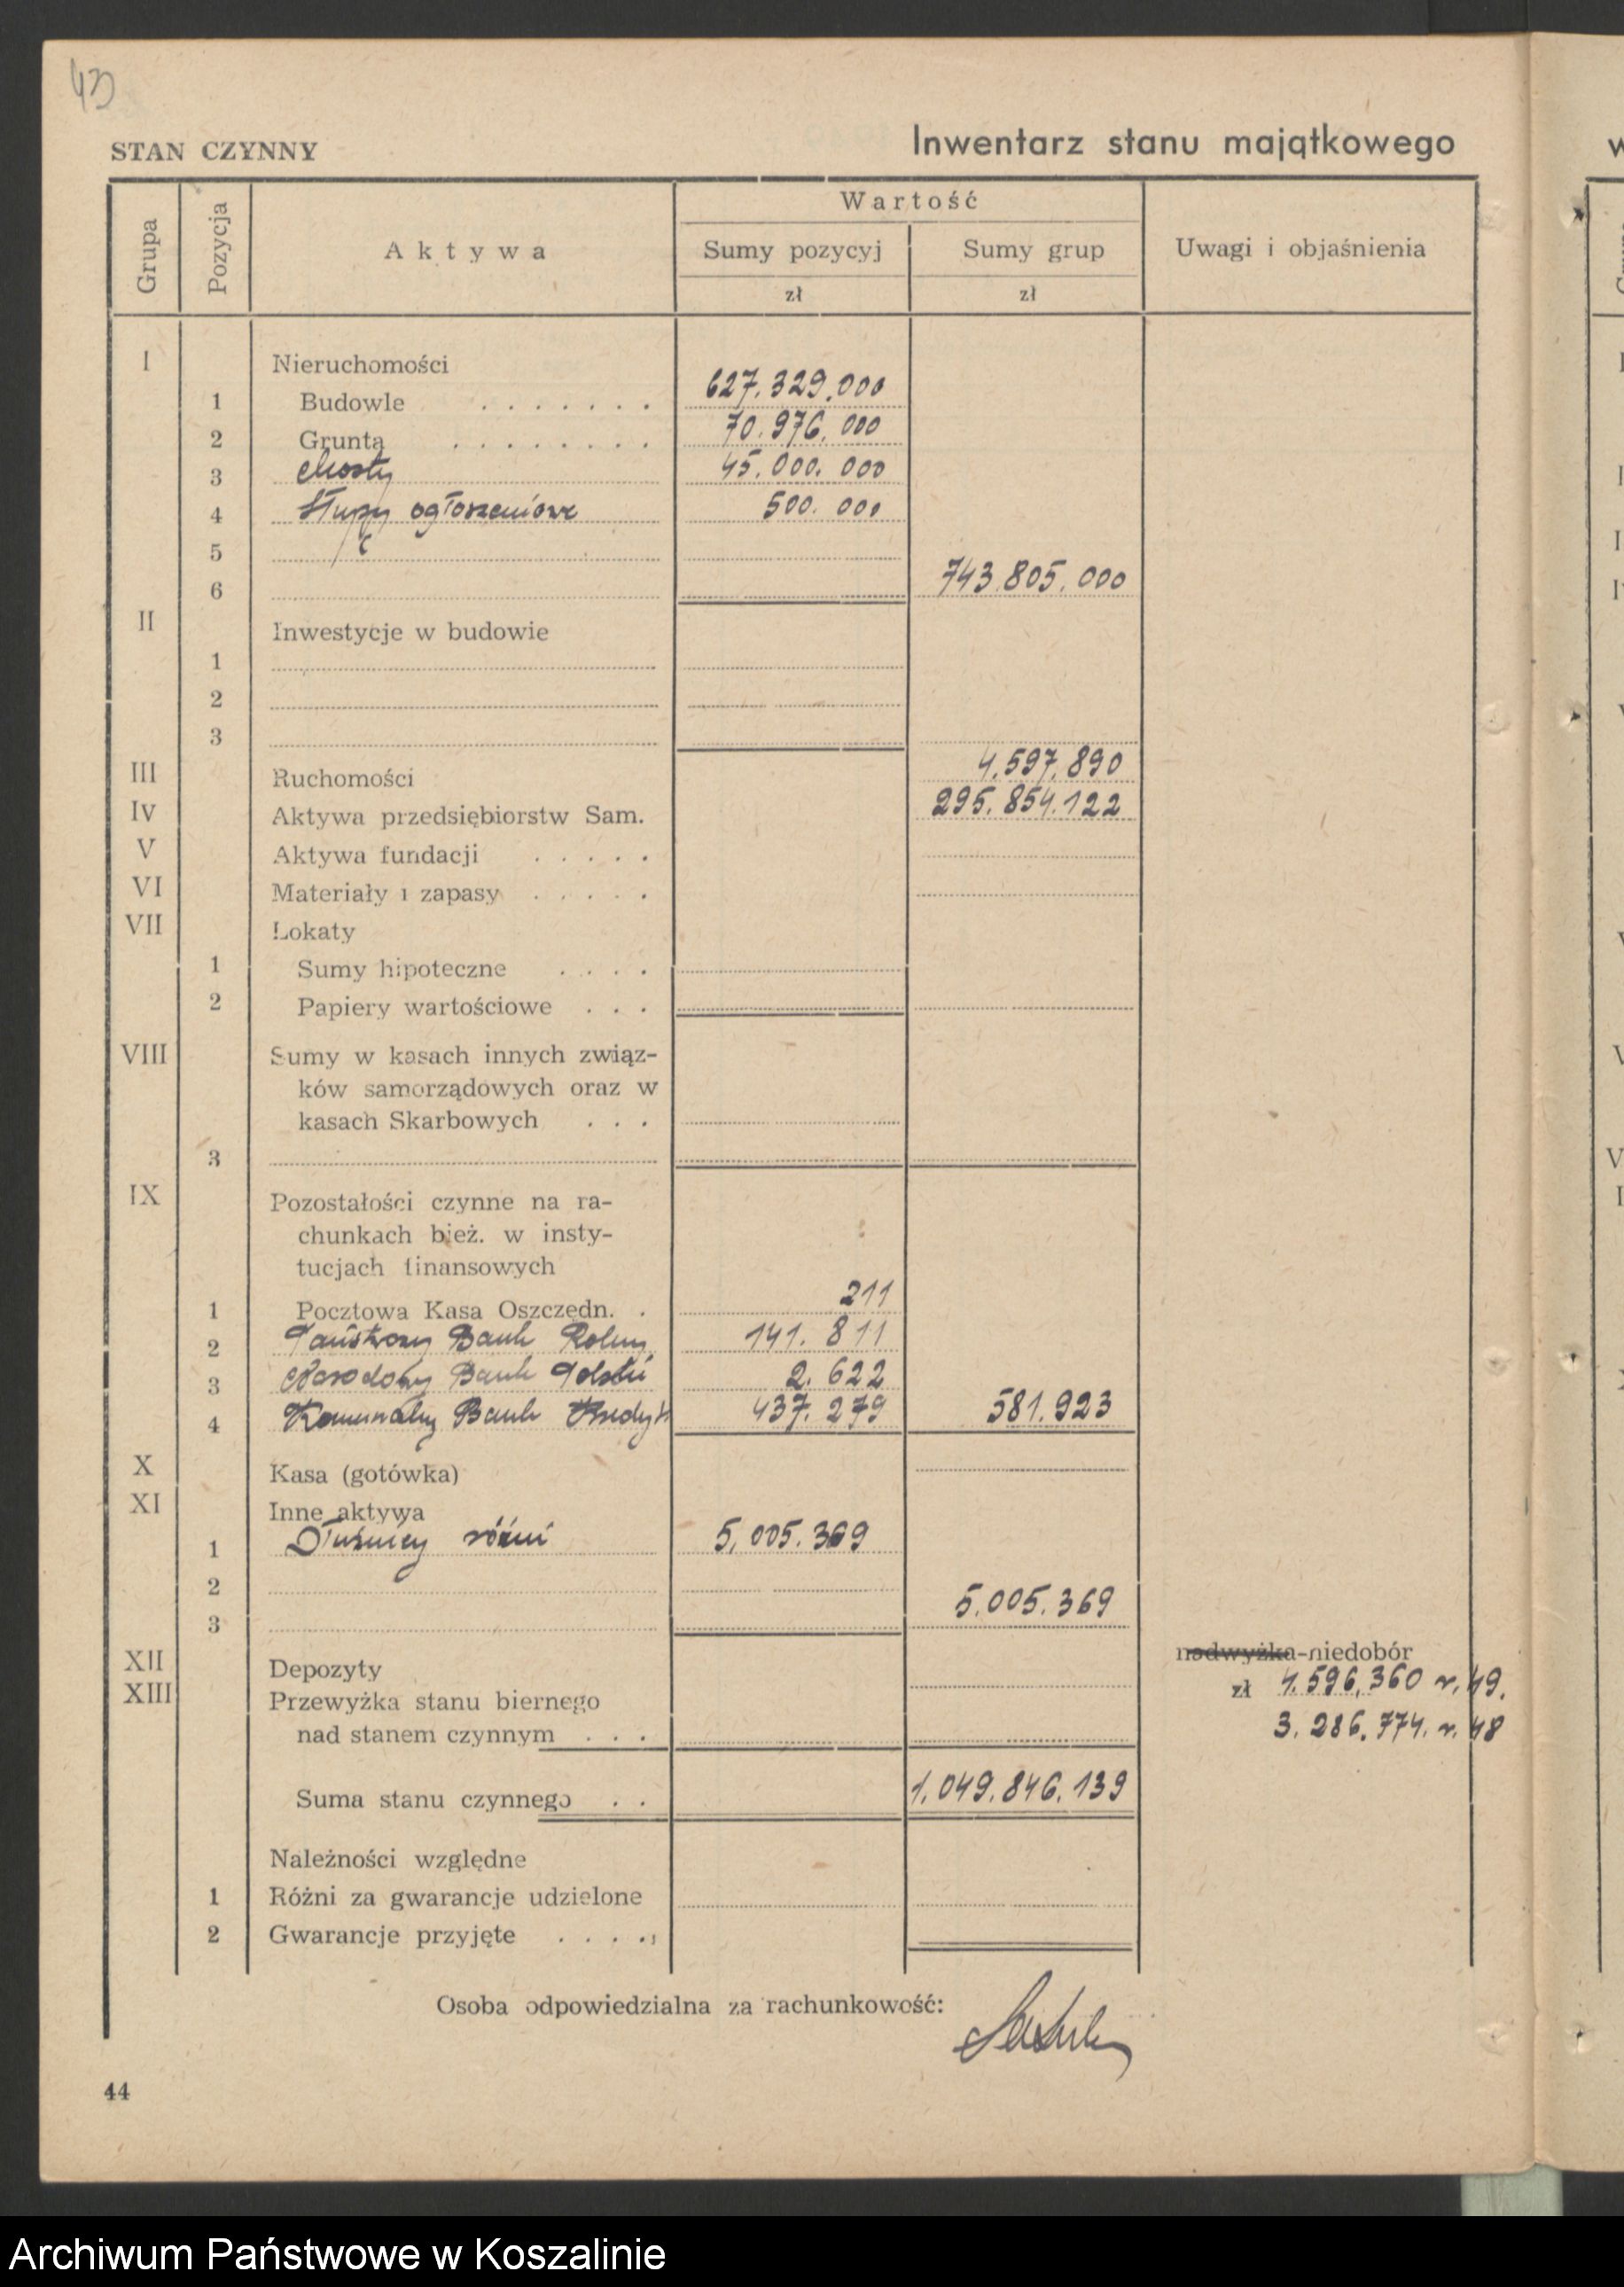 43
STAN CZYNNY
Inwentarz stanu majątkowego
Grupa Pozycja Aktywa Wartość Uwagi i objaśnienia
Sumy pozycyj Sumy grup
zł zł
I Nieruchomości
1 Budowle . . . . . . . 627.329.000
2 Grunta . . . . . . . . 70.976.000
3 Mosty 45.000.000
4 Słupy ogłoszeniowe 500.000
5
6 743.805.000
II Inwestycje w budowie
1
2
3
III Ruchomości 4.597.890
IV Aktywa przedsiębiorstw Sam. 295.854.122
V Aktywa fundacji . . . . .
VI Materiały i zapasy . . . . .
VII Lokaty
1 Sumy hipoteczne . . . .
2 Papiery wartościowe . . .
VIII Sumy w kasach innych związ-
ków samorządowych oraz w
kasach Skarbowych . . .
3
IX Pozostałości czynne na ra-
chunkach bież. w insty-
tucjach finansowych
1 Pocztowa Kasa Oszczędn. . 211
2 Państwowy Bank Rolny 141.811
3 Narodowy Bank Polski 2.622
4 Komunalny Bank Kredyt 437.279 581.923
X Kasa (gotówka)
XI Inne aktywa
1 Dłużnicy różni 5.005.369
2
3 5.005.369
XII Depozyty
XIII Przewyżka stanu biernego
nad stanem czynnym . . .
nadwyżka-niedobór
zł 1.596.360 r. 49.
3.286.774. r. 48
Suma stanu czynnego . . 1.049.846.139
Należności względne
1 Różni za gwarancje udzielone
2 Gwarancje przyjęte . . . .
Osoba odpowiedzialna za rachunkowość:
44
Archiwum Państwowe w Koszalinie